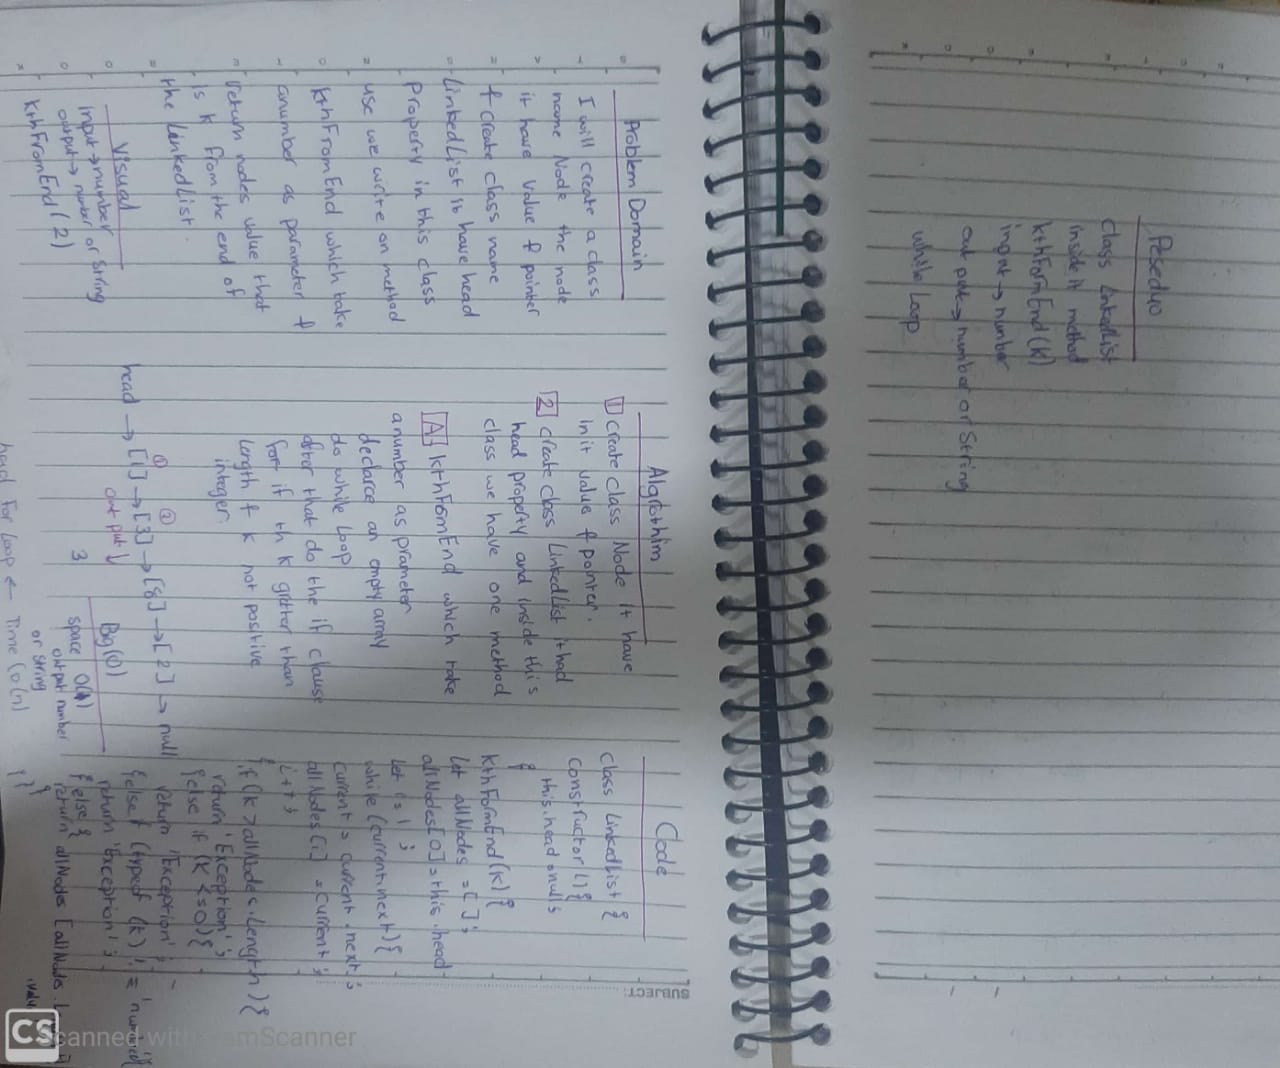 Peseduo
class LinkedList
inside it method
kthForm End (k)
input → number
out put → number or String
while Loop
Problem Domain
I will create a class
name Node the node
it have value & pointer
& create class name
LinkedList it have head
Property in this class
use we write on method
kthFromEnd which take
anumber as parameter &
return nodes value that
is k from the end of
the LinkedList.
Visual
input → number
output → number or string
kthFromEnd (2)
head → [1] → [3] → [8] → [2] → null
① ②
out put ↓
3
Algrothim
1 create class Node it have
init value & pointer.
2 create class LinkedList it had
head property and inside this
class we have one method
A kthFromEnd which take
anumber as prameter
declarce an empty array
do while Loop
after that do the if clause
for if th k grather than
length & k not positive
integer.
Big(O)
space O(1)
output number
or string
Time (O(n)
For Loop ←
Code
class LinkedList {
constructor () {
this.head = null;
}
kthFormEnd (k) {
let allNodes = [ ];
allNodes[0] = this.head
let i = 1;
while (current.next) {
current = current.next;
allNodes [i] = current;
i++;
}
if (k > allNodes.length) {
return 'Exception';
} else if (k <= 0) {
return 'Exception';
} else if (typeof (k) != 'number
return 'Exception';
} else {
return allNodes [allNodes.
.value
}
}
SUBJECT:
CS Scanned with CamScanner